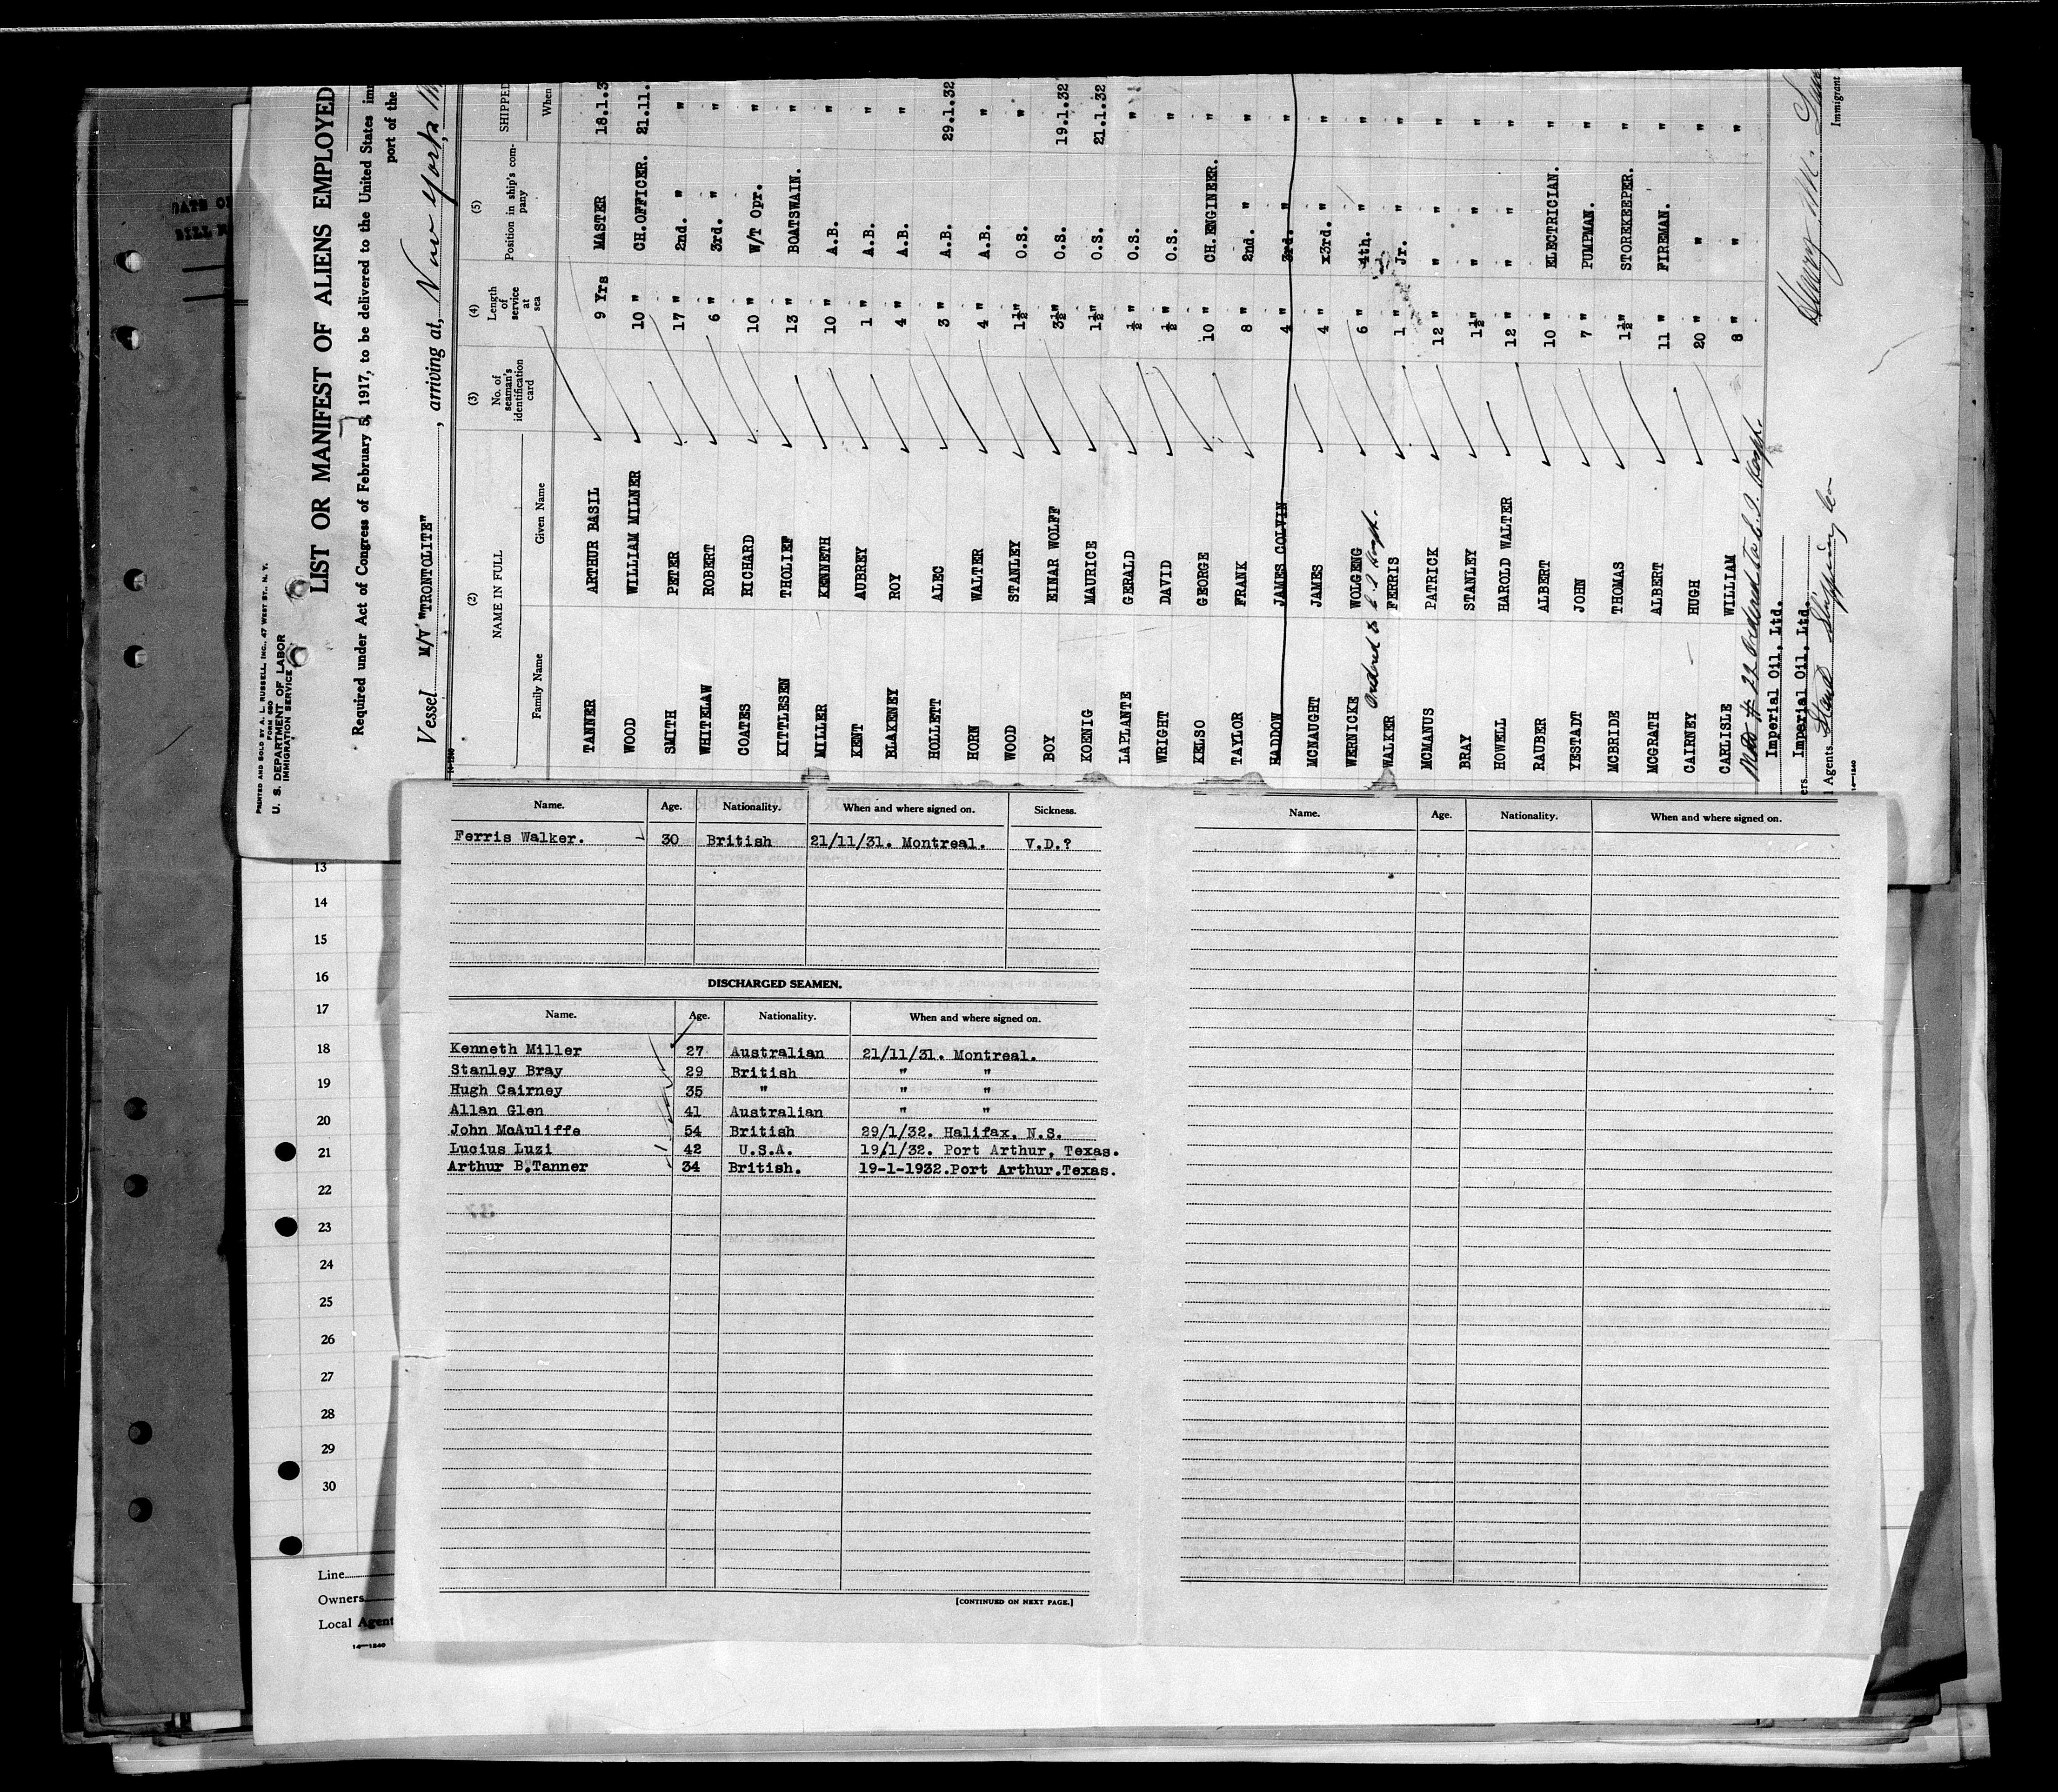 PRINTED AND SOLD BY A. L. RUSSELL, INC., 47 WEST ST., N. Y.
FORM 680
U. S. DEPARTMENT OF LABOR
IMMIGRATION SERVICE
LIST OR MANIFEST OF ALIENS EMPLOYED
Required under Act of Congress of February 5, 1917, to be delivered to the United States
port of the
Vessel M/V "TRONTOLITE", arriving at, New York
(2) (3) (4) (5)
NAME IN FULL No. of seaman's identification card Length of service at sea Position in ship's company SHIPPED
Family Name Given Name When
TANNER ARTHUR BASIL 9 Yrs MASTER 18.1.3
WOOD WILLIAM MILNER 10 " CH.OFFICER. 21.11.
SMITH PETER 17 " 2nd. " "
WHITELAW ROBERT 6 " 3rd. " "
COATES RICHARD 10 " W/T Opr. "
KITTLESEN THOLIEF 13 " BOATSWAIN. "
MILLER KENNETH 10 " A.B. "
KENT AUBREY 1 " A.B. "
BLAKENEY ROY 4 " A.B. "
HOLLETT ALEC 3 " A.B. 29.1.32
HORN WALTER 4 " A.B. "
WOOD STANLEY 1½" O.S. "
BOY EINAR WOLFF 3½" O.S. 19.1.32
KOENIG MAURICE 1½" O.S. 21.1.32
LAPLANTE GERALD ½ " O.S. "
WRIGHT DAVID ½ " O.S. "
KELSO GEORGE 10 " CH.ENGINEER. "
TAYLOR FRANK 8 " 2nd. " "
HADDOW JAMES COLVIN 4 " 3rd. " "
MCNAUGHT JAMES 4 " x3rd. " "
WERNICKE WOLGENG 6 " 4th. " "
Ordered to E.I. Hosp.
WALKER FERRIS 1 " Jr. " "
MCMANUS PATRICK 12 " " " "
BRAY STANLEY 1½" " " "
HOWELL HAROLD WALTER 12 " " " "
RAUBER ALBERT 10 " ELECTRICIAN. "
YESTADT JOHN 7 " PUMPMAN. "
MCBRIDE THOMAS 1½" STOREKEEPER. "
MCGRATH ALBERT 11 " FIREMAN. "
CAIRNEY HUGH 20 " " "
CARLISLE WILLIAM 8 " " "
# 22 Ordered to E.I. Hosp.
Imperial Oil, Ltd.
ers Imperial Oil, Ltd.
Agents Stand Shipping Co
14—1240
Immigrant
Name. Age. Nationality. When and where signed on. Sickness.
Ferris Walker. 30 British 21/11/31. Montreal. V.D.?
DISCHARGED SEAMEN.
Name. Age. Nationality. When and where signed on.
Kenneth Miller 27 Australian 21/11/31. Montreal.
Stanley Bray 29 British " "
Hugh Cairney 35 " " "
Allan Glen 41 Australian " "
John McAuliffe 54 British 29/1/32. Halifax, N.S.
Lucius Luzi 42 U.S.A. 19/1/32. Port Arthur, Texas.
Arthur B.Tanner 34 British. 19-1-1932.Port Arthur.Texas.
[CONTINUED ON NEXT PAGE.]
Name. Age. Nationality. When and where signed on.
13
14
15
16
17
18
19
20
21
22
23
24
25
26
27
28
29
30
Line
Owners
Local Agent
14—1240